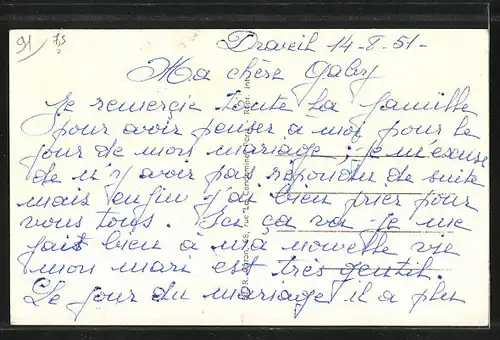 91 75
Draveil 14-8-51-
Ma chère Gaby
Je remercie toute la famille
pour avoir penser à moi pour le
jour de mon mariage ; je m'excuse
de n'y avoir pas répondu de suite
mais enfin j'ai bien prier pour
vous tous. Ici ça va je me
fait bien à ma nouvelle vie
mon mari est très gentil.
Le jour du mariage il a plu